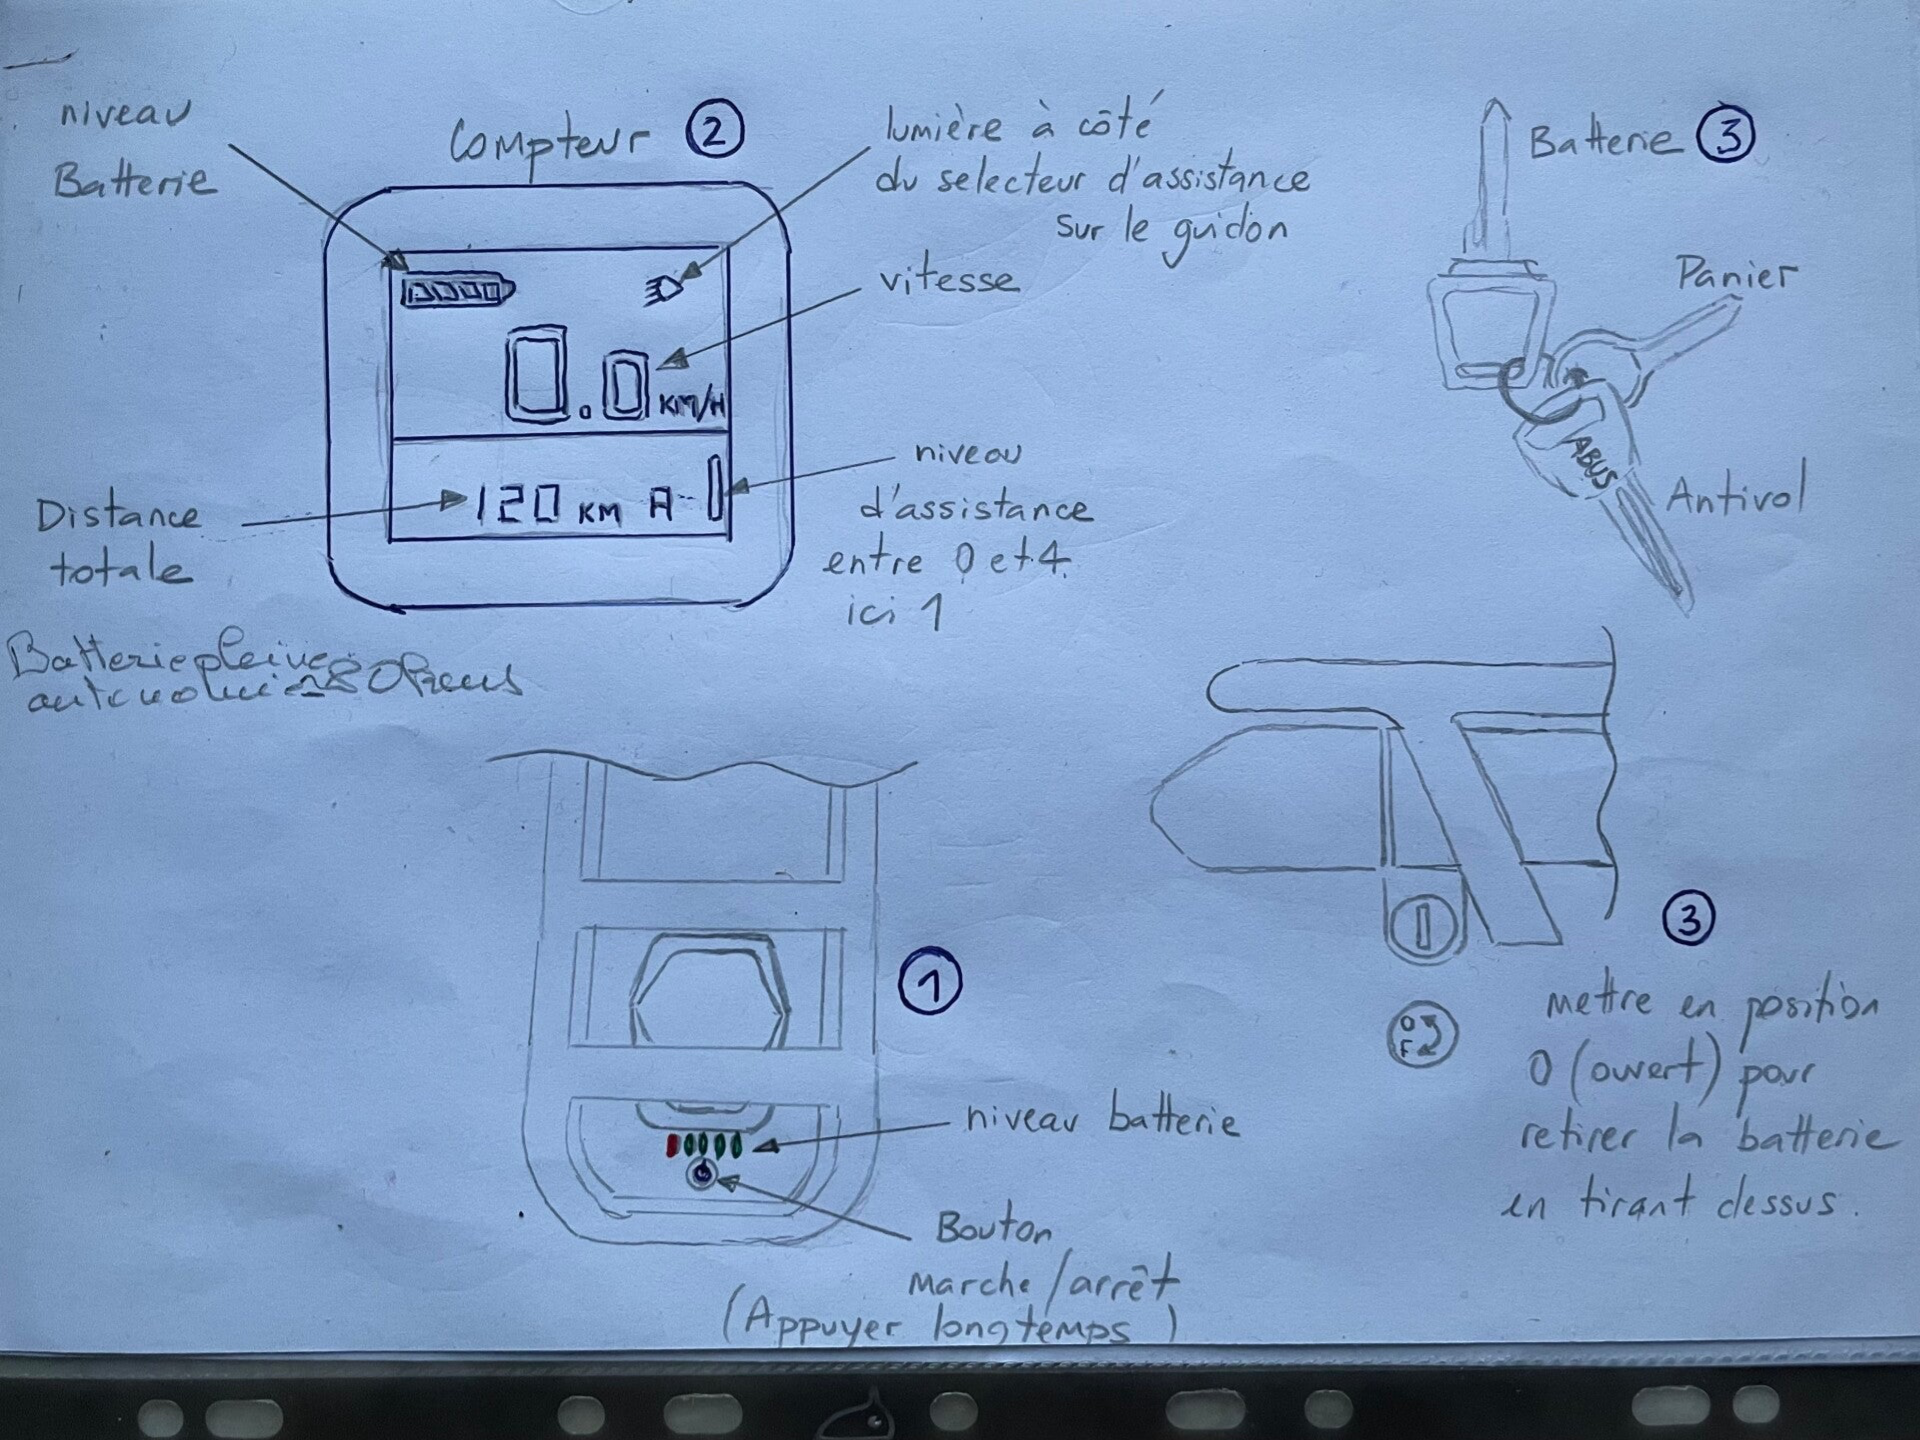 niveau
Batterie
Compteur 2
lumière à côté
du selecteur d'assistance
sur le guidon
vitesse
0.0 KM/H
120 KM A 1
Distance
totale
niveau
d'assistance
entre 0 et 4
ici 1
Batterie pleine
autonomie 80 kms
Batterie 3
Panier
ABUS
Antivol
1
niveau batterie
Bouton
Marche/arrêt
(Appuyer longtemps)
3
O
F
mettre en position
O (ouvert) pour
retirer la batterie
en tirant dessus.